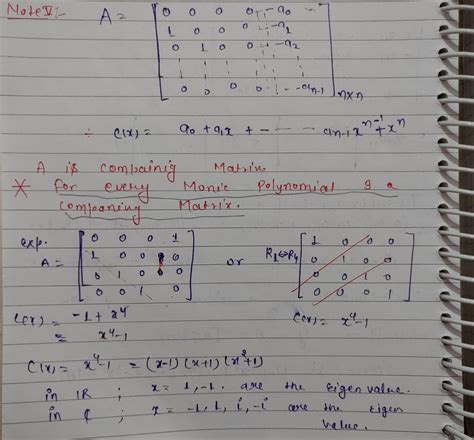 Note V:-
A = [ 0 0 0 0 -- -a0 --
1 0 0 0 -- -a1
0 1 0 0 -- -a2
0 0 0 0 -- -an-1 ] n×n
∴ C(x) = a0 + a1x + - - - - an-1 x^n-1 + x^n
A is companing Matrix.
* for every Monic Polynomial ∃ a
companing Matrix.
exp. A = [ 0 0 0 1 or R1↔R4 [ 1 0 0 0
1 0 0 0 0 1 0 0
0 1 0 0 0 0 1 0
0 0 1 0 ] 0 0 0 1 ]
C(x) = -1 + x^4 C(x) = x^4-1
= x^4-1
C(x) = x^4-1 = (x-1) (x+1) (x^2+1)
in IR ; x = 1, -1. are the eigen value.
in ₵ ; x = -1, 1, i, -i are the eigen
value.